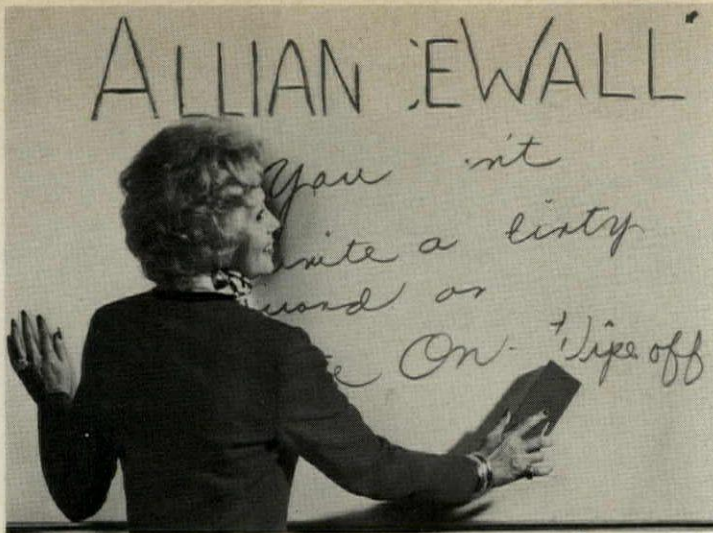 ALLIAN EWALL
You n't
write a dirty
word on
te On - Wipe off